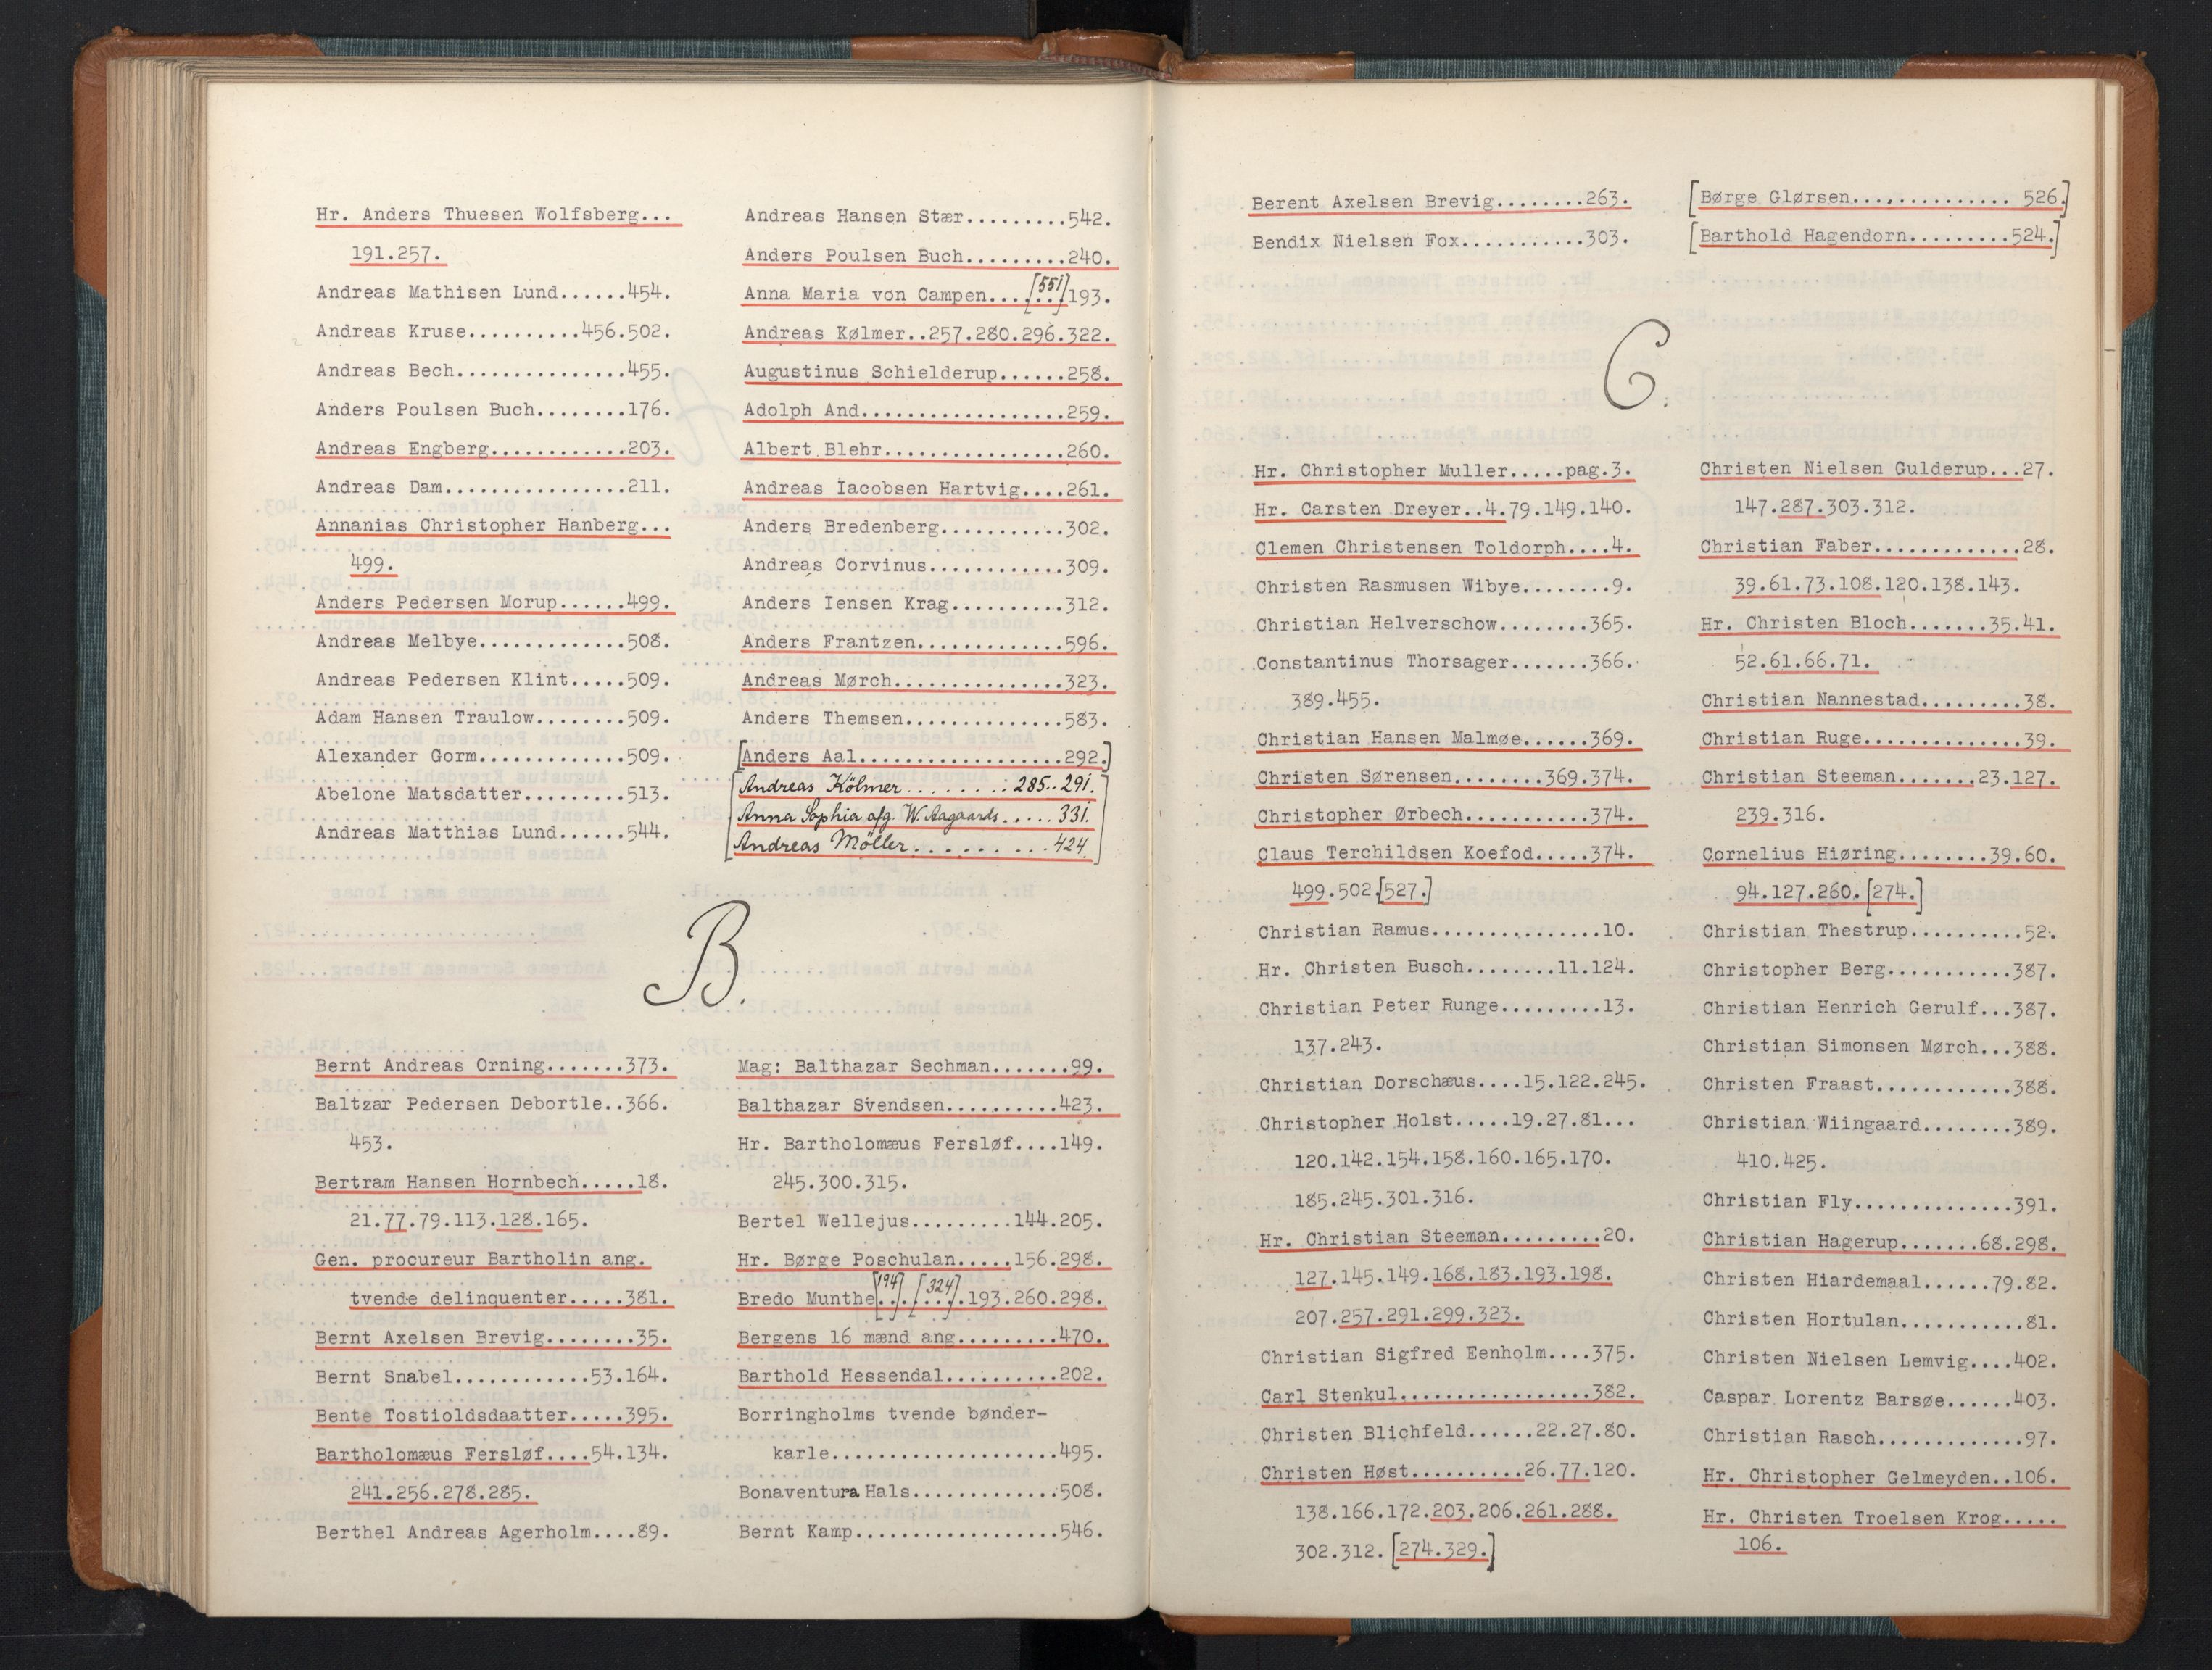 Hr. Anders Thuesen Wolfsberg...
191.257.
Andreas Mathisen Lund......454.
Andreas Kruse..........456.502.
Andreas Bech...............455.
Anders Poulsen Buch........176.
Andreas Engberg............203.
Andreas Dam................211.
Annanias Christopher Hanberg...
499.
Anders Pedersen Morup......499.
Andreas Melbye.............508.
Andreas Pedersen Klint.....509.
Adam Hansen Traulow........509.
Alexander Gorm.............509.
Abelone Matsdatter.........513.
Andreas Matthias Lund......544.
Andreas Hansen Stær.........542.
Anders Poulsen Buch.........240.
Anna Maria von Campen...[551]193.
Andreas Kølmer..257.280.296.322.
Augustinus Schielderup......258.
Adolph And..................259.
Albert Blehr................260.
Andreas Iacobsen Hartvig....261.
Anders Bredenberg...........302.
Andreas Corvinus............309.
Anders Iensen Krag..........312.
Anders Frantzen.............596.
Andreas Mørch...............323.
Anders Themsen..............583.
[Anders Aal..................292.]
[Andreas Kölmer........285..291.
Anna Sophia afg. W. Aagaards.....331.
Andreas Möller.........424.]
B.
Bernt Andreas Orning.......373.
Baltzar Pedersen Debortle..366.
453.
Bertram Hansen Hornbech.....18.
21.77.79.113.128.165.
Gen. procureur Bartholin ang.
tvende delinquenter.....381.
Bernt Axelsen Brevig........35.
Bernt Snabel............53.164.
Bente Tostioldsdaatter.....395.
Bartholomæus Fersløf....54.134.
241.256.278.285.
Berthel Andreas Agerholm....89.
Mag: Balthazar Sechman.......99.
Balthazar Svendsen..........423.
Hr. Bartholomæus Fersløf....149.
245.300.315.
Bertel Wellejus.........144.205.
Hr. Børge Poschulan.....156.298.
Bredo Munthe[194].[324].193.260.298.
Bergens 16 mænd ang.........470.
Barthold Hessendal..........202.
Borringholms tvende bønder-
karle....................495.
Bonaventura Hals.............508.
Bernt Kamp..................546.
Berent Axelsen Brevig........263.
Bendix Nielsen Fox...........303.
[Børge Glørsen............... 526.]
[Barthold Hagendorn.........524.]
C.
Hr. Christopher Muller.....pag.3.
Hr. Carsten Dreyer..4.79.149.140.
Clemen Christensen Toldorph....4.
Christen Rasmusen Wibye........9.
Christian Helverschow........365.
Constantinus Thorsager.......366.
389.455.
Christian Hansen Malmøe......369.
Christen Sørensen........369.374.
Christopher Ørbech...........374.
Claus Terchildsen Koefod.....374.
499.502.[527.]
Christian Ramus...............10.
Hr. Christen Busch........11.124.
Christian Peter Runge.........13.
137.243.
Christian Dorschæus....15.122.245.
Christopher Holst.....19.27.81...
120.142.154.158.160.165.170.
185.245.301.316.
Hr. Christian Steeman.........20.
127.145.149.168.183.193.198.
207.257.291.299.323.
Christian Sigfred Eenholm....375.
Carl Stenkul.................382.
Christen Blichfeld......22.27.80.
Christen Høst..........26.77.120.
138.166.172.203.206.261.288.
302.312.[274.329.]
Christen Nielsen Gulderup...27.
147.287.303.312.
Christian Faber.............28.
39.61.73.108.120.138.143.
Hr. Christen Bloch.......35.41.
52.61.66.71.
Christian Nannestad.........38.
Christian Ruge..............39.
Christian Steeman.......23.127.
239.316.
Cornelius Hiøring........39.60.
94.127.260.[274.]
Christian Thestrup..........52.
Christopher Berg...........387.
Christian Henrich Gerulf...387.
Christian Simonsen Mørch...388.
Christen Fraast............388.
Christian Wiingaard........389.
410.425.
Christian Fly..............391.
Christian Hagerup.......68.298.
Christen Hiardemaal......79.82.
Christen Hortulan...........81.
Christen Nielsen Lemvig....402.
Caspar Lorentz Barsøe......403.
Christian Rasch.............97.
Hr. Christopher Gelmeyden..106.
Hr. Christen Troelsen Krog.....
106.